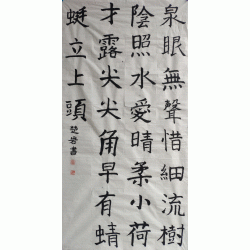 泉眼無聲惜細流樹
陰照水愛晴柔小荷
才露尖尖角早有蜻
蜓立上頭
楚岩書